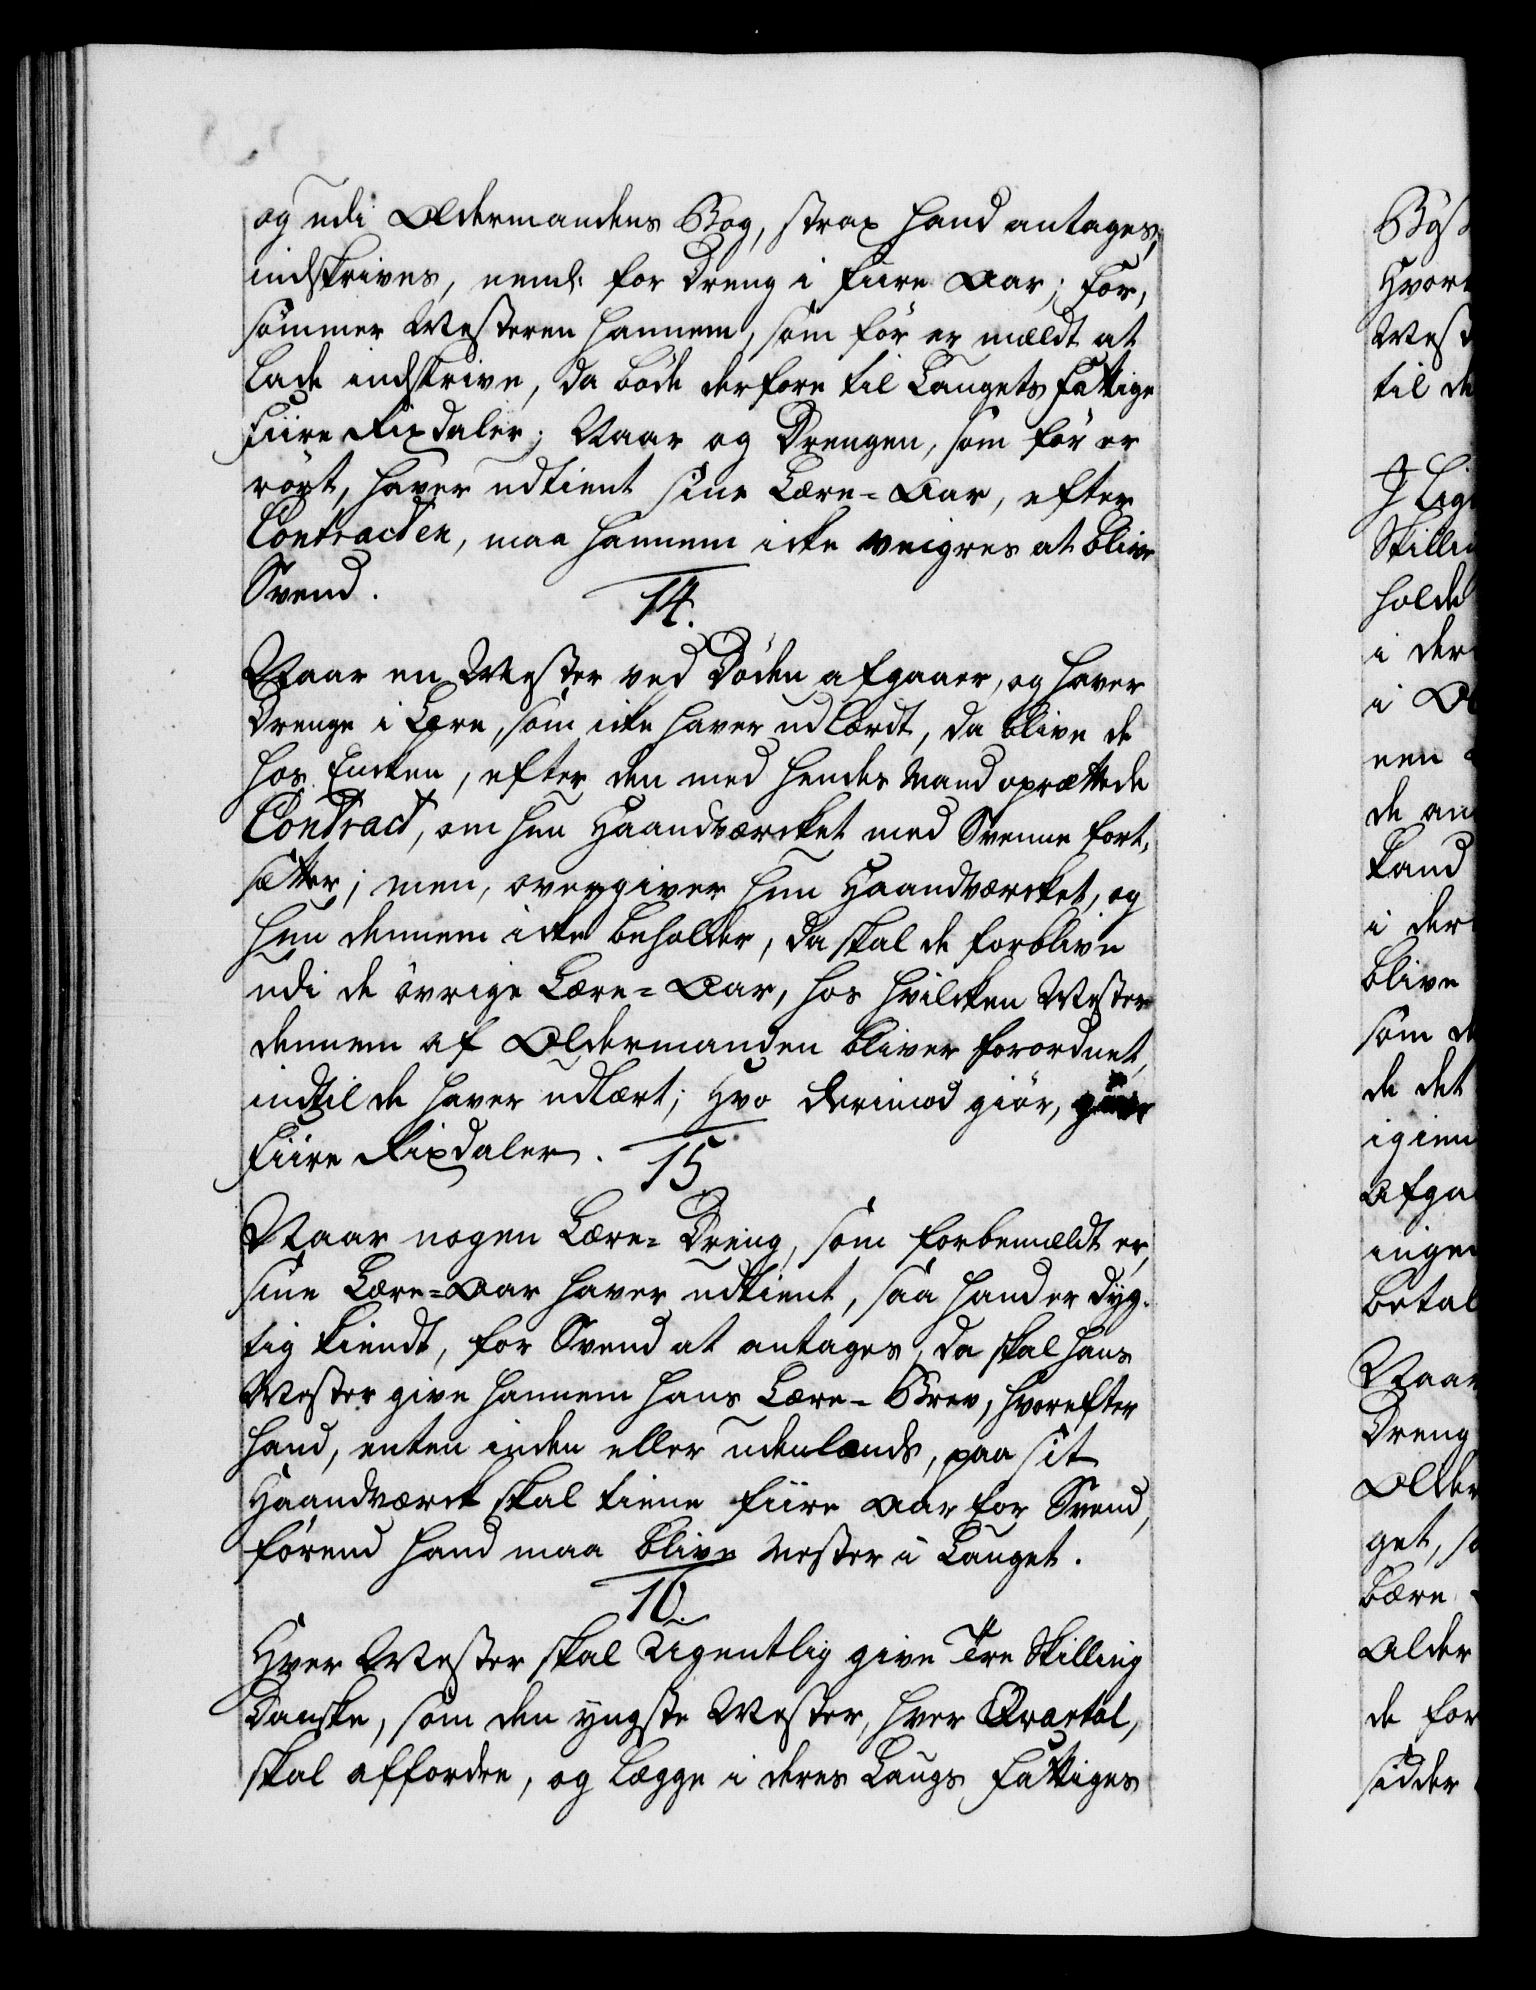 og udi Oldermandens Bog, strax hand antages,
indskrives, neml: for Dreng i fiire Aar; for,
sömmer Mesteren hannem, som för er mældt at
lade indskrive, da böde derfore til Laugets Fattige
fiire Rixdaler; Naar og Drengen, som för er
rört, haver udtient sine Lære=Aar, efter
Contracten, maa hannem icke veigres at blive
Svend.
14.
Naar en Mester ved Döden afgaaer, og haver
Drenge i Lære, som icke haver udlærdt, da blive de
hos Encken, efter den med hendes Mand oprættede
Contract, om hun Haandværcket med Svenne fort,
sætter; men, overgiver hun Haandværcket, og
hun dennem icke beholder, da skal de forblive
udi de övrige Lære=Aar, hos hvilcken Mester
dennem af Oldermanden bliver forordnet,
indtil de haver udlært; Hvo derimod giör,
fiire Rixdaler.
15
Naar nogen Lære=Dreng, som forbemældt er,
sine Lære=Aar haver udtient, saa hand er dyg-
tig kiendt, for Svend at antages, da skal hans
Mester give hannem hans Lære=Brev, hvorefter
hand, enten inden eller udenlands, paa sit
Haandværck skal tiene fiire Aar for Svend,
förend hand maa blive Mester i Lauget.
16.
Hver Mester skal Ugentlig give Tre Skilling
Danske, som den yngste Mester, hver Qvartal,
skal affordre, og lægge i deres Laugs Fattiges